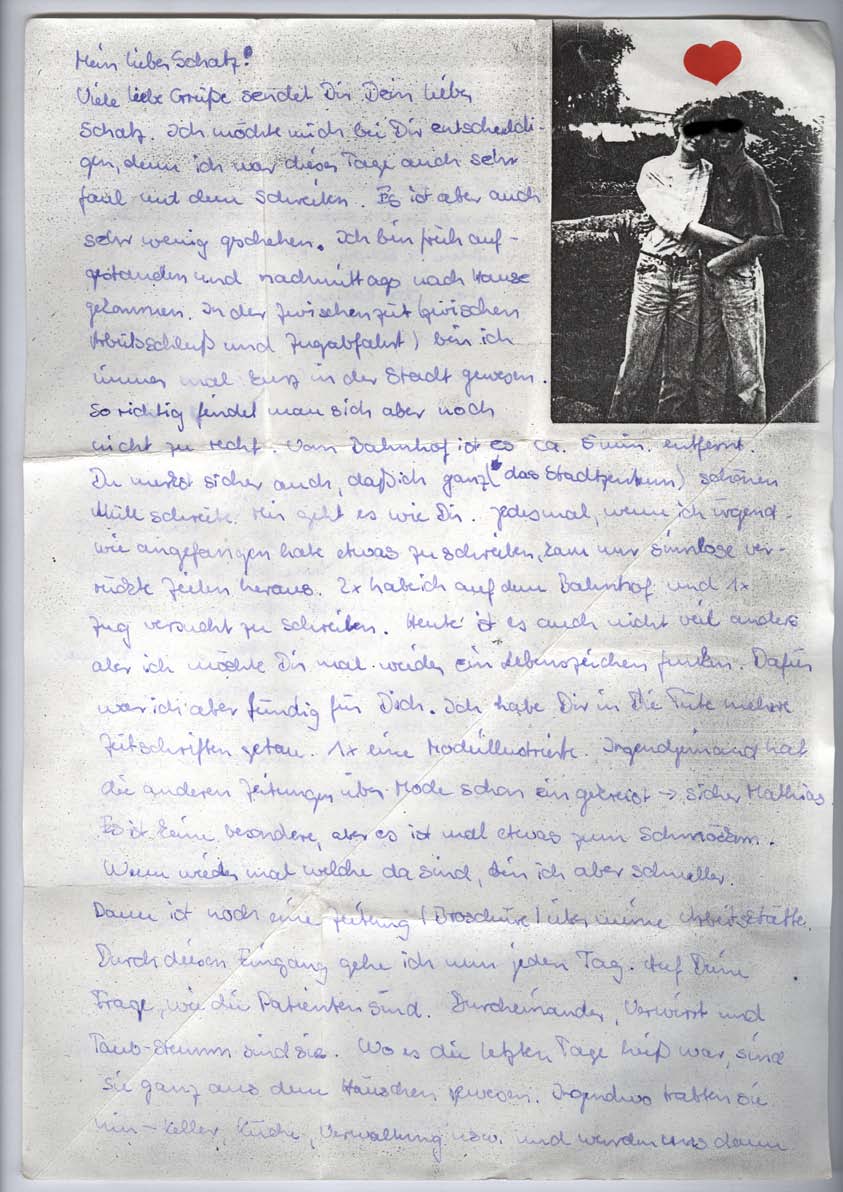 Mein lieber Schatz!
Viele liebe Grüße sendet Dir Dein lieber
Schatz. Ich möchte mich bei Dir entschuldi-
gen, denn ich war diese Tage auch sehr
faul mit dem Schreiben. Es ist aber auch
sehr wenig geschehen. Ich bin früh auf-
gestanden und nachmittags nach Hause
gekommen. In der Zwischenzeit (zwischen
Arbeitsschluß und Zugabfahrt) bin ich
immer mal kurz in der Stadt gewesen.
So richtig findet man sich aber noch
nicht zu recht. Vom Bahnhof ist es ca. 5 min. entfernt.
Du merkst sicher auch, daß ich ganz (das Stadtzentrum) schönen
Müll schreibe. Mir geht es wie Dir. Jedesmal, wenn ich irgend-
wie angefangen habe etwas zu schreiben, kam nur sinnlose ver-
rückte Zeilen heraus. 2x hab ich auf dem Bahnhof und 1x
Zug versucht zu schreiben. Heute ist es auch nicht viel anders
aber ich möchte Dir mal wieder ein Lebenszeichen funken. Dafür
war ich aber fündig für Dich. Ich habe Dir in die Tüte mehrere
Zeitschriften getan. 1x eine Modeillustrierte. Irgendjemand hat
die anderen Zeitungen über Mode schon eingekreist → sicher Mathias.
Es ist keine besondere, aber es ist mal etwas zum Schmöckern.
Wenn wieder mal welche da sind, bin ich aber schneller.
Dann ist noch eine Zeitung (Broschüre) über meine Arbeitsstätte.
Durch diesen Eingang gehe ich nun jeden Tag. Auf Deine
Frage, wie die Patienten sind. Durcheinander, Verwirrt und
Taub-Stumm sind sie. Wo es die letzten Tage heiß war, sind
sie ganz aus dem Häuschen gewesen. Irgendwo trabten sie
hin - Keller, Küche, Verwaltung usw. und wurden uns dann